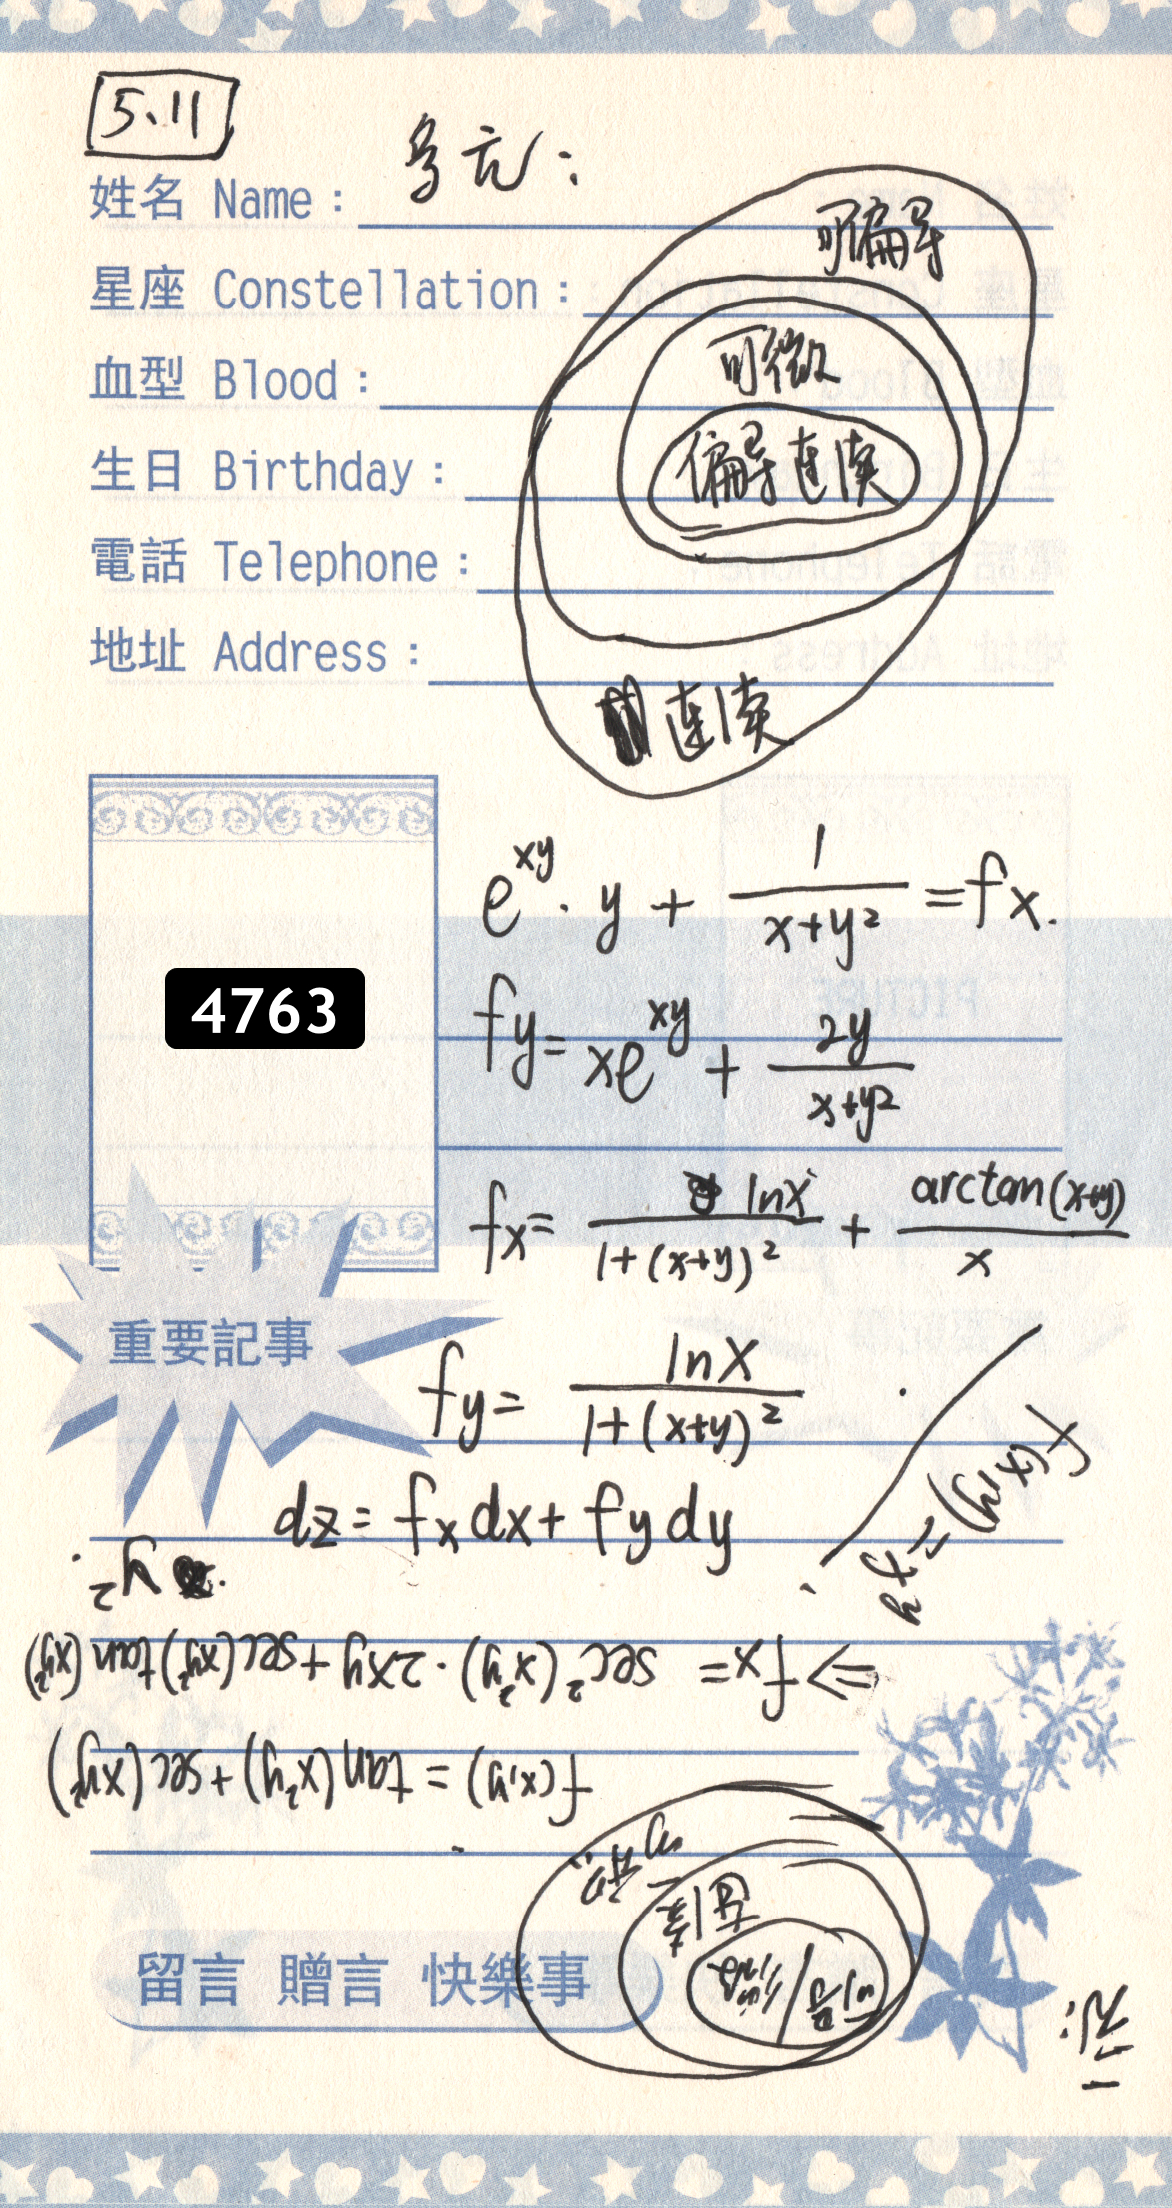 5.11
多元：
姓名 Name：
可偏导
星座 Constellation：
可微
血型 Blood：
偏导连续
生日 Birthday：
電話 Telephone：
地址 Address：
连续
e^{xy}·y + 1/(x+y²) = fx.
4763
fy = xe^{xy} + 2y/(x+y²)
fx = lnx/(1+(x+y)²) + arctan(x+y)/x
重要記事
fy = lnx/(1+(x+y)²)
dz = fxdx + fydy
f(x,y)
y²
⇒ fx = sec²(x²y)·2xy + sec(xy²)tan(xy²)
f(x,y) = tan(x²y) + sec(xy²)
连续
可导/可微
留言 贈言 快樂事
一元：